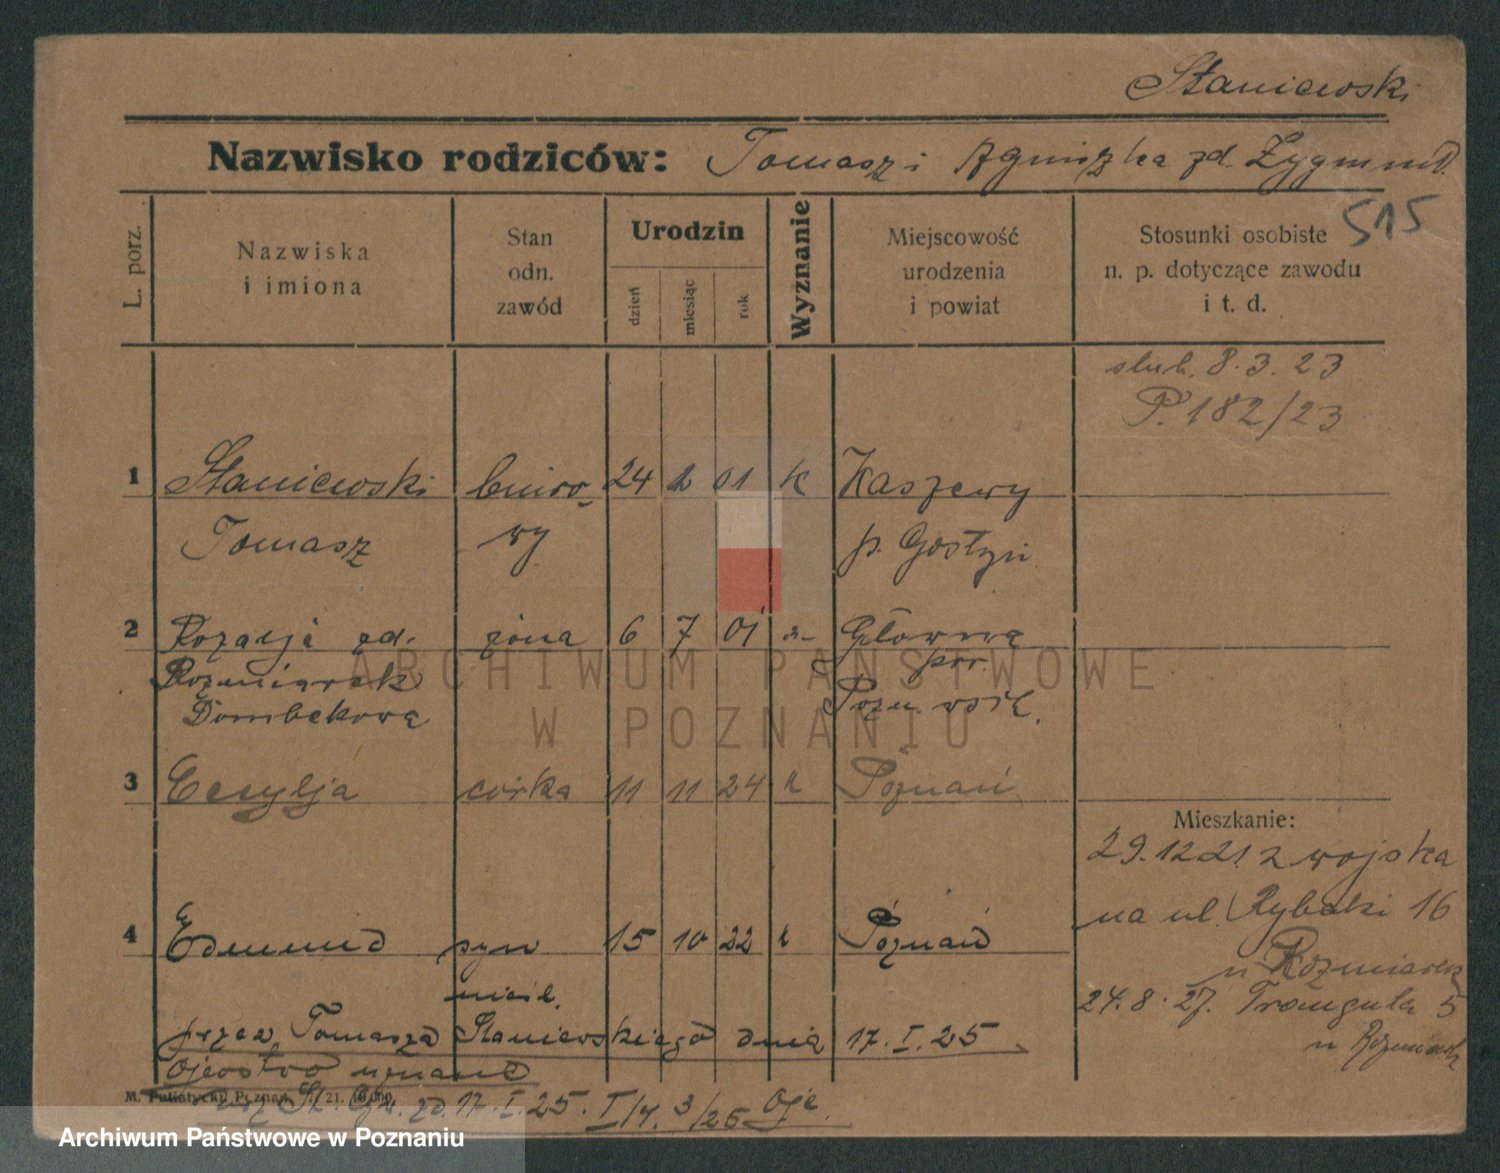 Staniewski
Nazwisko rodziców: Tomasz i Agniszka zd. Zygmunt.
515
L. porz.
Nazwiska
i imiona
Stan
odn.
zawód
Urodzin
dzień
miesiąc
rok
Wyznanie
Miejscowość
urodzenia
i powiat
Stosunki osobiste
n. p. dotyczące zawodu
i t. d.
slub. 8.3.23
P. 182/23
1 Staniewski biuro- 24 2 01 k Kaszewy
Tomasz wy p. Gostyń
2 Rozalja zd. żona 6 7 01 Główna
Rozmiarek pow.
Dombekowa Pozn. wsch.
3 Cecylja córka 11 11 24 k Poznań
Mieszkanie:
29.12 21. z wojska
na ul. Rybaki 16
u Rozmiarek
24.8.27. Trąuguta 5
u Rozmiarek
4 Edmund syn 15 10 22 k Poznań
nieśl.
przez Tomasza Staniewskiego dnia 17.I.25
Ojcostwo uznane
M. Putiatycki Poznań
17.I.25. I/4. 3/25
ARCHIWUM PAŃSTWOWE
W POZNANIU
Archiwum Państwowe w Poznaniu